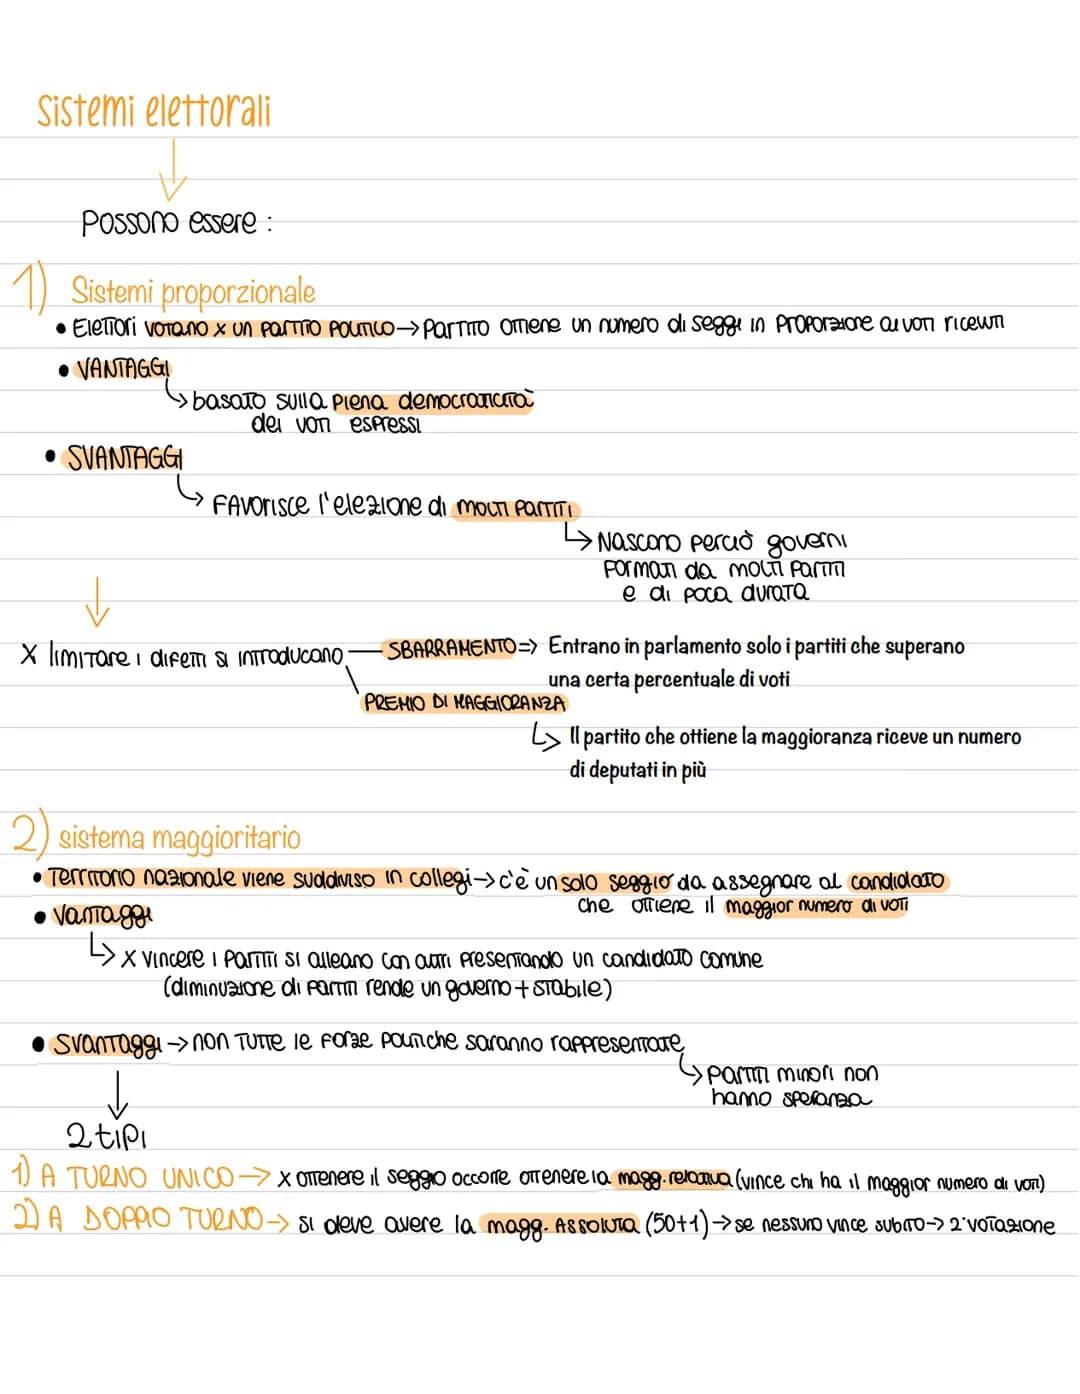 Sistemi elettorali
Possono essere :
1) Sistemi proporzionale
• Elettori votano x un partito politico → Partito ottiene un numero di seggi in proporzione ai voti ricevuti
• VANTAGGI
↳ basato sulla piena democraticità
dei voti espressi
• SVANTAGGI
↳ Favorisce l'elezione di molti partiti
↳ Nascono perciò governi
formati da molti partiti
e di poca durata
x limitare i difetti si introducono
SBARRAMENTO => Entrano in parlamento solo i partiti che superano
una certa percentuale di voti
PREMIO DI MAGGIORANZA
↳ Il partito che ottiene la maggioranza riceve un numero
di deputati in più
2) sistema maggioritario
• Territorio nazionale viene suddiviso in collegi → c'è un solo seggio da assegnare al candidato
che ottiene il maggior numero di voti
• Vantaggi
↳ x vincere i partiti si alleano con altri presentando un candidato comune
(diminuzione di partiti rende un governo + stabile)
• Svantaggi → non tutte le forze politiche saranno rappresentate
↳ partiti minori non
hanno speranza
2 tipi
1) A TURNO UNICO → x ottenere il seggio occorre ottenere la magg. relativa (vince chi ha il maggior numero di voti)
2) A DOPPIO TURNO → si deve avere la magg. Assoluta (50+1) → se nessuno vince subito → 2° votazione